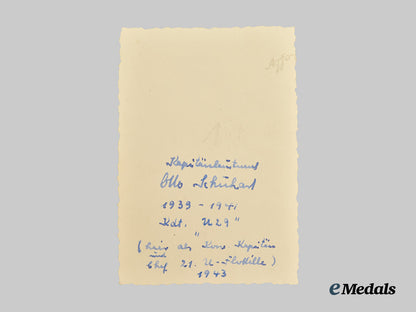 Kapitänleutnant
Otto Schuhart
1939 - 1941
Kdt. "U 29"
(hier als Korv. Kapitän
und
Chef 21. U-Flottille)
1943
eMedals